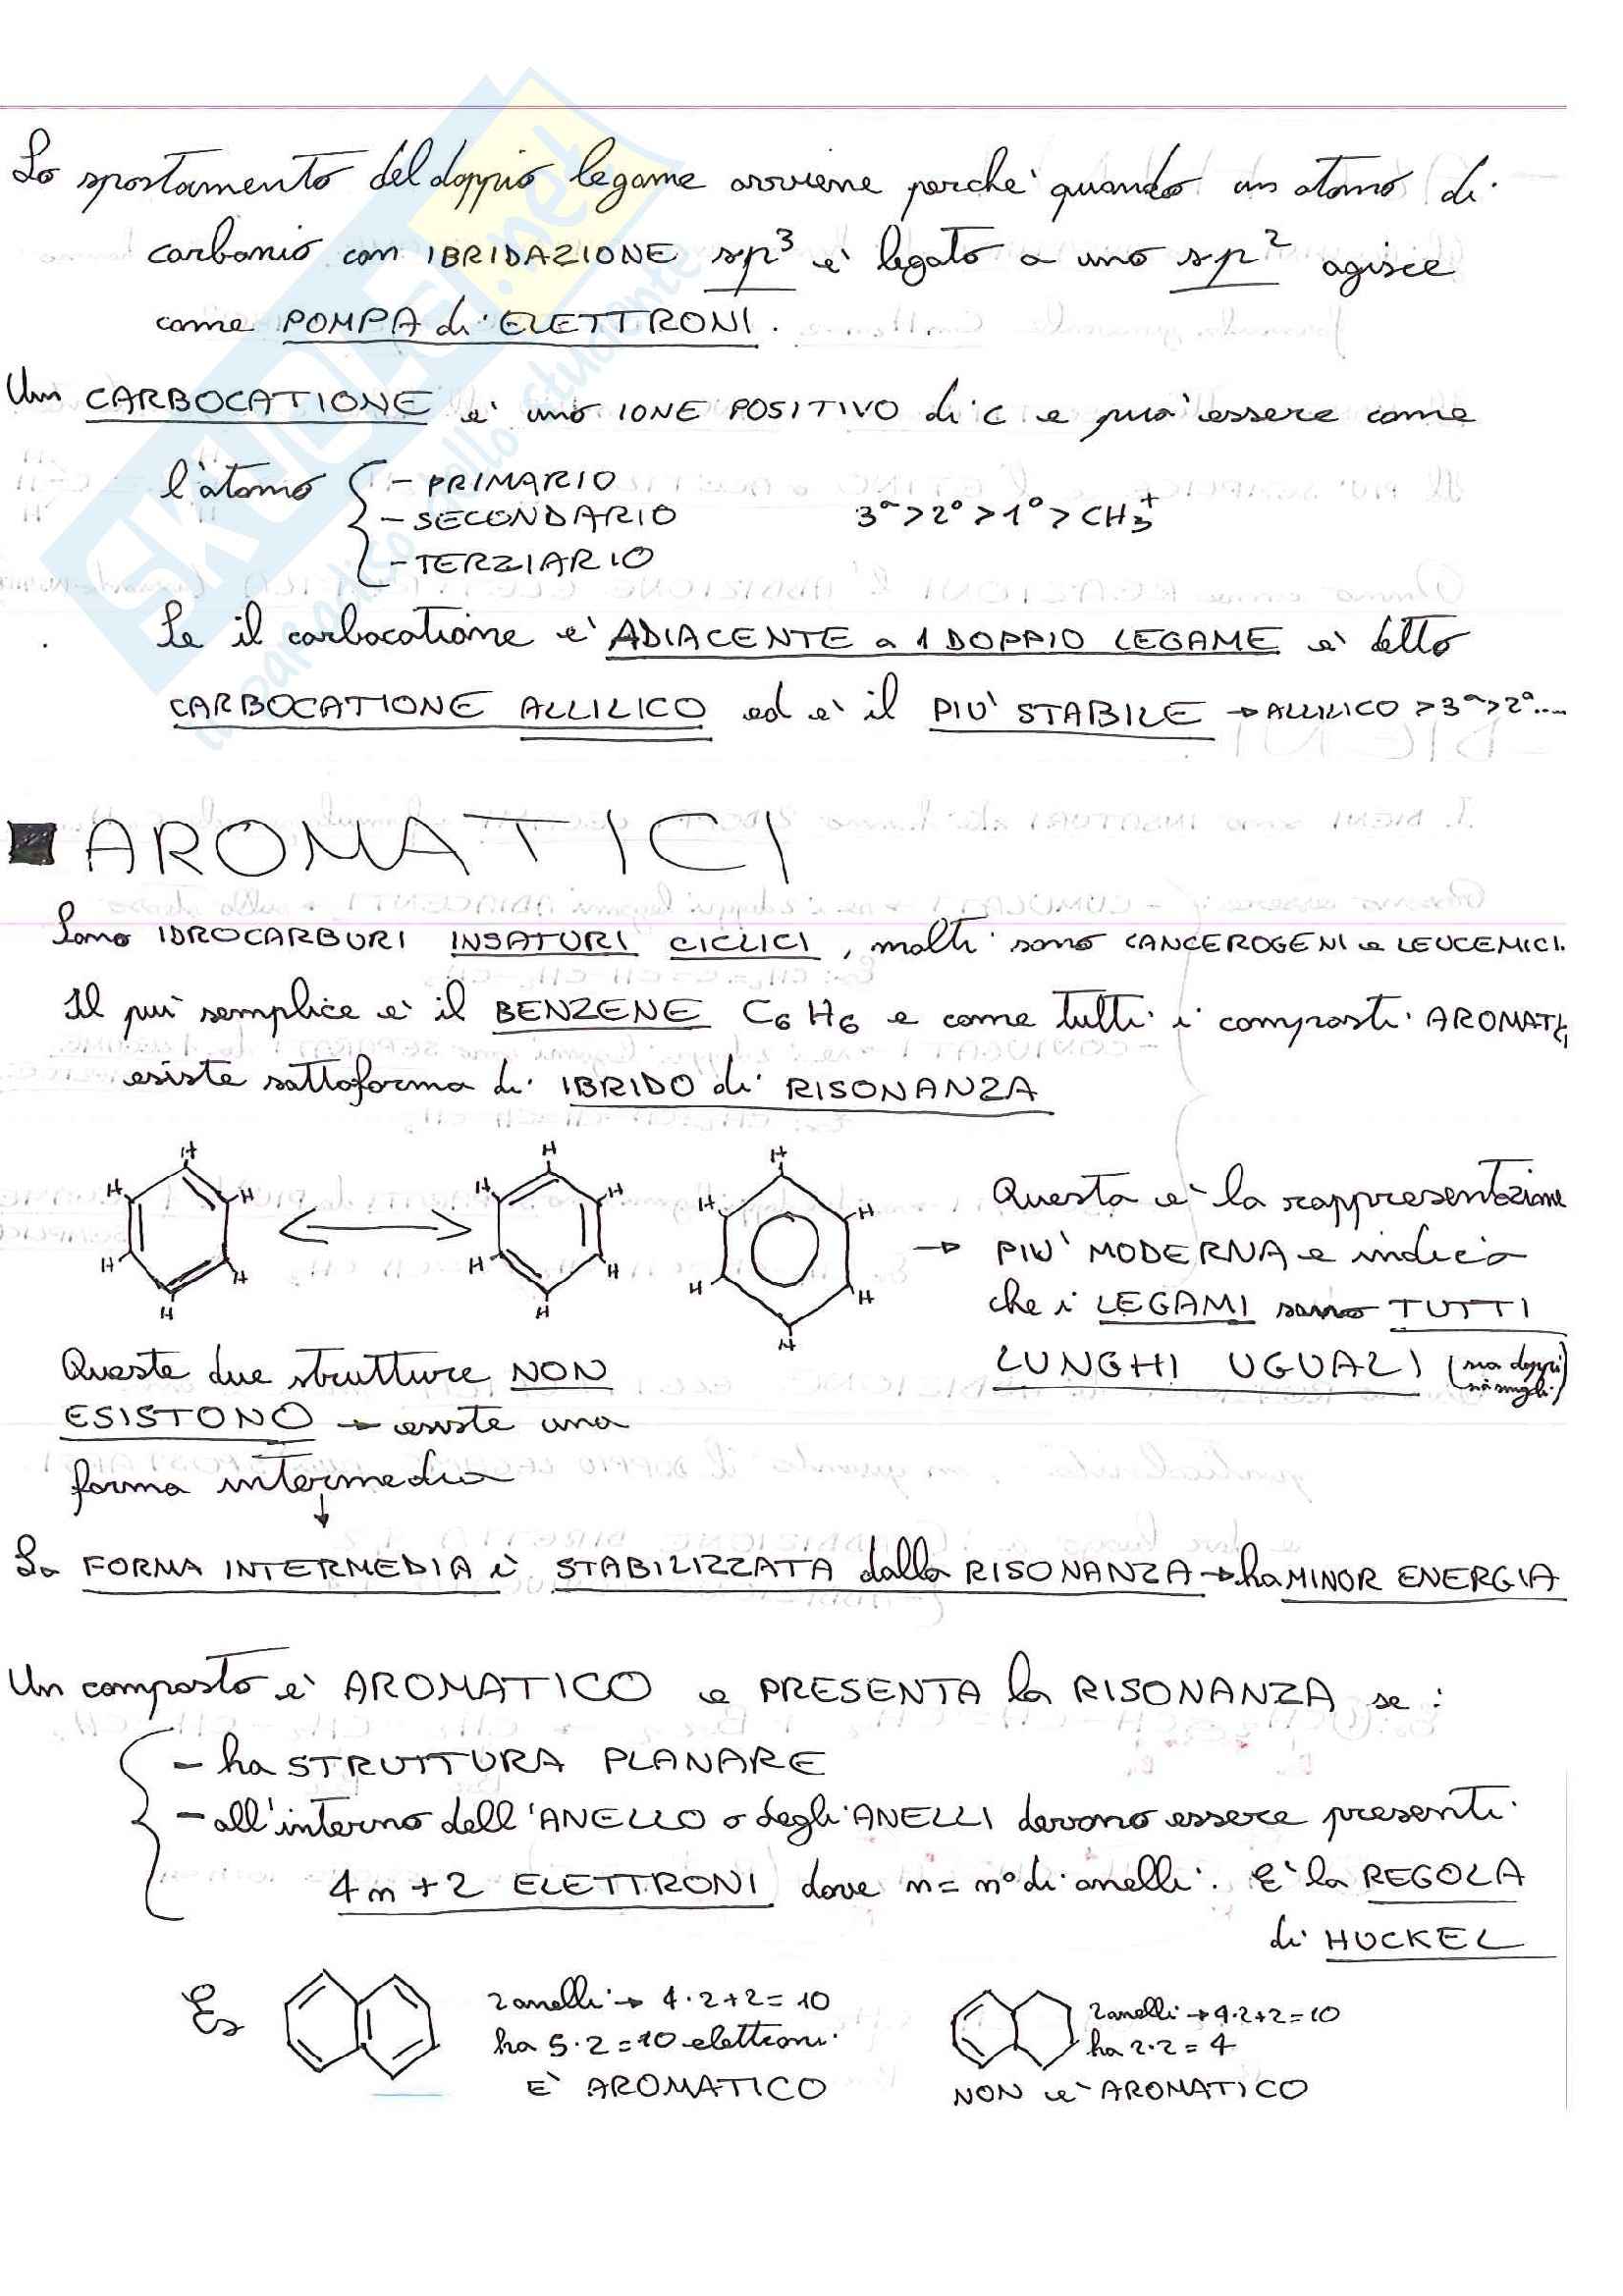 Lo spostamento del doppio legame avviene perchè quando un atomo di
carbonio con IBRIDAZIONE sp³ è legato a uno sp² agisce
come POMPA di ELETTRONI.
Un CARBOCATIONE è uno IONE POSITIVO di C e può essere come
l'atomo { - PRIMARIO
- SECONDARIO 3° > 2° > 1° > CH₃⁺
- TERZIARIO
Se il carbocatione è ADIACENTE a 1 DOPPIO LEGAME è detto
CARBOCATIONE ALLILICO ed è il PIÙ STABILE → ALLILICO > 3° > 2°....
■ AROMATICI
Sono IDROCARBURI INSATURI CICLICI, molti sono CANCEROGENI e LEUCEMICI.
Il più semplice è il BENZENE C₆H₆ e come tutti i composti AROMATICI
esiste sottoforma di IBRIDO di RISONANZA
H H H H H H
H H H H H H
H H H H H H
Questa è la rappresentazione
→ PIÙ MODERNA e indica
che i LEGAMI sono TUTTI
LUNGHI UGUALI (sia doppi
sia singoli)
Queste due strutture NON
ESISTONO → esiste una
forma intermedia
↓
La FORMA INTERMEDIA è STABILIZZATA dalla RISONANZA → ha MINOR ENERGIA
Un composto è AROMATICO e PRESENTA la RISONANZA se:
{ - ha STRUTTURA PLANARE
- all'interno dell'ANELLO o degli ANELLI devono essere presenti
4n+2 ELETTRONI dove n = n° di anelli. È la REGOLA
di HUCKEL
Es 2 anelli → 4·2+2=10
ha 5·2=10 elettroni.
È AROMATICO
2 anelli → 4·2+2=10
ha 2·2=4
NON è AROMATICO
SKUOLA.net